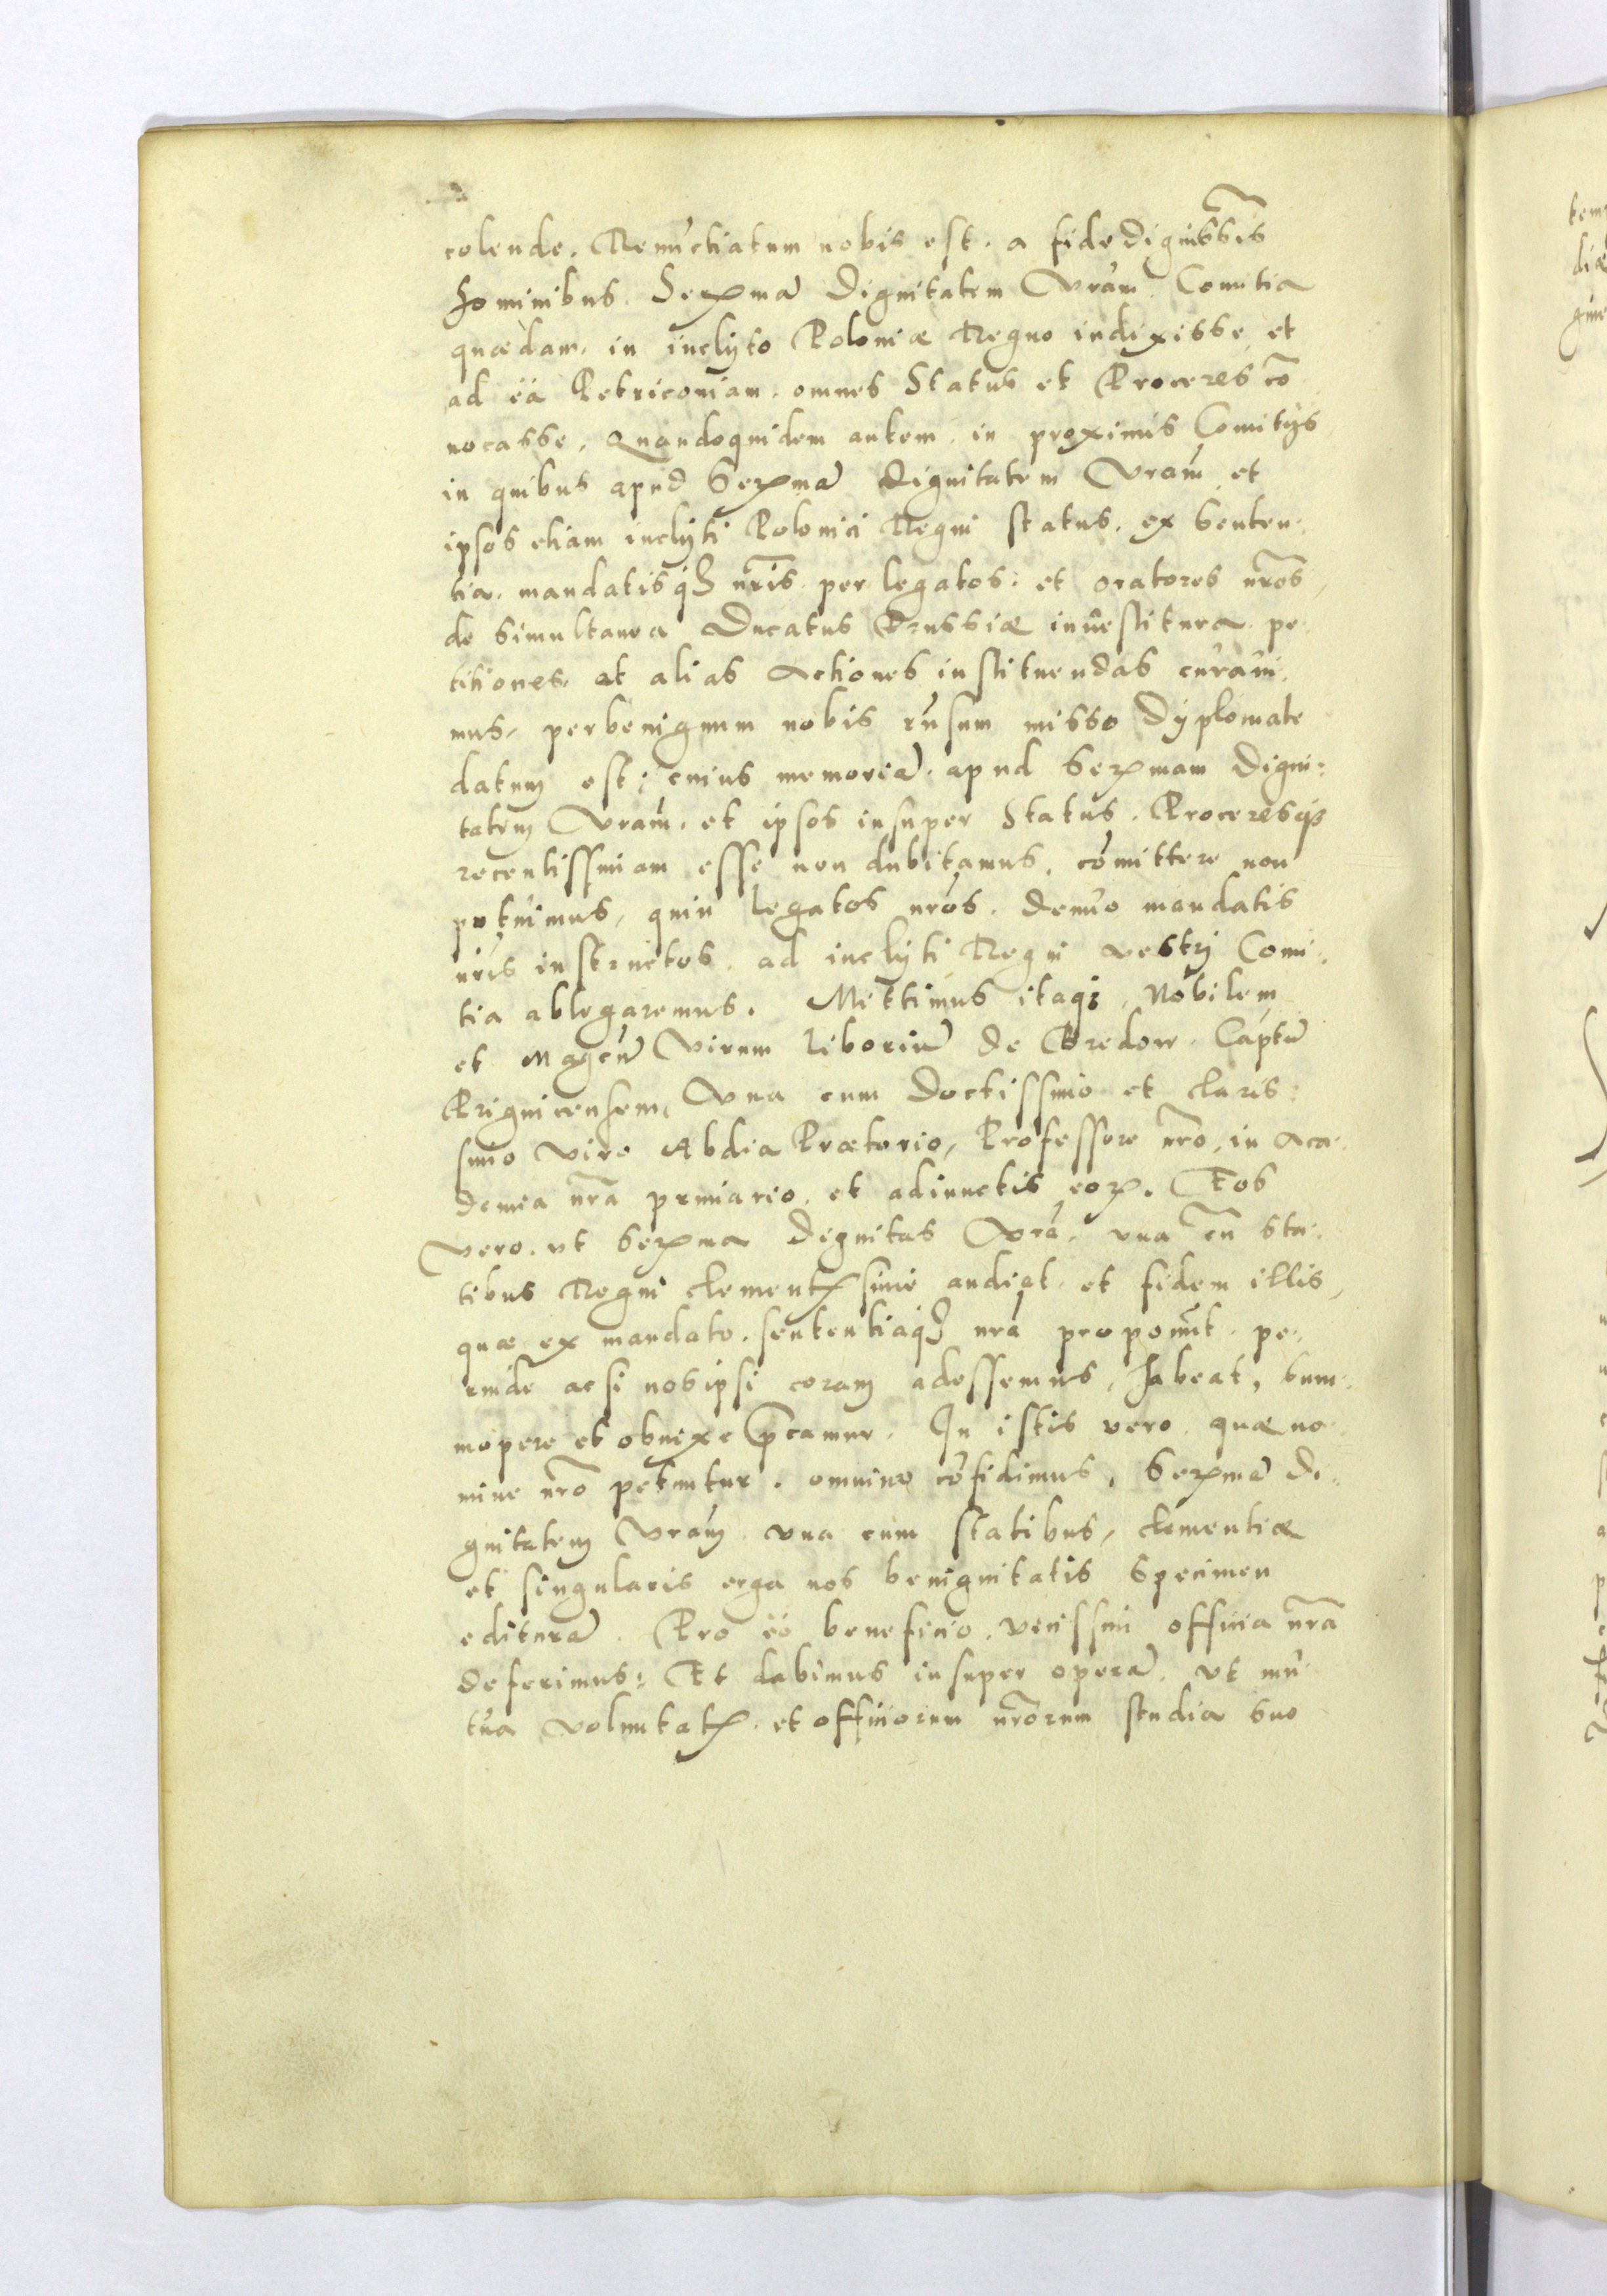 colende. Renuctiatum nobis est. a fide dignissis
hominibus. Sermã dignitatem Vram Comitia
quædam. in inclyto Poloniæ Regno indixisse et
ad ea Petriconiam. omnes Status et Proceres cõ
uocasse. Quandoquidem autem. in proximis Comitijs
in quibus apud Serzmã dignitatem Vram et
ipsos etiam inclyti Polonici Regni status. ex senten-
tia. mandatisq3 nris per legatos. et oratores nros
de simultanea Ducatus Prussiæ inuestitura pe-
titiones. et alias actiones instituendas curaui-
mus, perbenignum nobis rusum misso dyplomate
datum est, cuius memoriã. apud Serzmam Digni:
tatem Vram. et ipsos insuper Status. Proceresq3
recentissimam esse non dubitamus, cõmittere non
potuimus, quin legatos nros. denuo mandatis
nris instructos. ad inclyti Regni vestrj Comi-
tia ablegaremus. Mittimus itaq3 Nobilem
et Magcũ Virum Liboriũ de Bredow. Captũ
Prignicensem, Vna cum doctissimo et claris:
simo viro Abdia Prætorio, Professore nro, in Aca-
demia nra prmiario. et adiunctis eorz. Eos
vero. vt Serzma dignitas Vra. vna cũ sta-
tibus Regni clementzsime audiat. et fidem illis,
quæ ex mandato. sententiaq3 nra proponũt. pe-
rinde ac si nos ipsi coram adessemus, habeat, sum-
mopere et obnixe p̃camur. In istis vero quæ no-
mine nro petuntur. omnino cõfidimus. Serzmã di-
gnitatem Vram vna cum statibus, clementiæ
et singularis erga nos benignitatis specimen
edituram. Pro eo beneficio. vicissim officia nra
deferimus: Et dabimus insuper operã. vt mu-
tua voluntatz. et officiorum nrorum studia suo